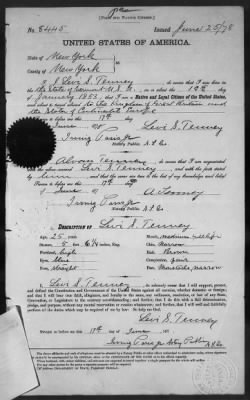 [FORM FOR NATIVE CITIZEN.]
No. 8445 Issued June 25/78
UNITED STATES OF AMERICA.
State of New York
County of New York
I, Levi S. Tenney, do swear that I was born
in the State of Vermont on or about the 19th day of
January 1853; that I am a Native and Loyal Citizen of the United States,
and about to travel abroad to the Kingdom of Great Britain and
the States of Continental Europe
Sworn to before me, this 17th day
of June 1878 Levi S. Tenney
Irving
Notary Public.
I, Alvan Tenney, do swear that I am acquainted
with the above named Levi S. Tenney, and with the facts stated
by him, and that the same are true to the best of my knowledge and belief.
Sworn to before me, this 17th day
of June A. Tenney
Irving
Notary Public.
DESCRIPTION OF Levi S. Tenney
Age, 25 Mouth, medium
Stature, 5 feet, 6 1/4 inches, Eng. Chin, narrow
Forehead, high Hair, Brown
Eyes, blue Complexion, good
Nose, straight Face, narrow
I, Levi S. Tenney, do solemnly swear that I will support, protect,
and defend the Constitution and Government of the United States against all enemies, whether domestic or foreign;
and that I will bear true faith, allegiance, and loyalty to the same, any ordinance, resolution, or law of any State,
Convention, or Legislature to the contrary notwithstanding; and further, that I do this with a full determination,
pledge, and purpose, without any mental reservation or evasion whatsoever; and further, that I will well and faithfully
perform all the duties which may be required of me by law. So help me God.
Levi S. Tenney
Sworn to before me, this 17th day of June 187
Irving Notary Public